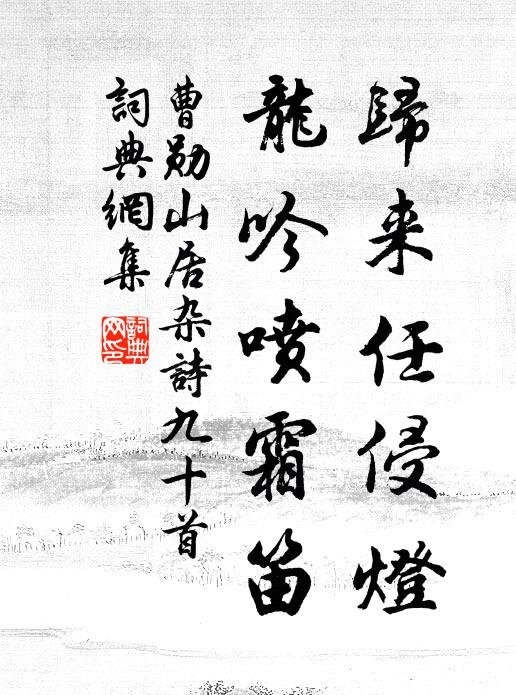 歸来任侵燈
龍吟噴霜笛
曹勛山居杂詩九十首
詞典網集
詞典網印